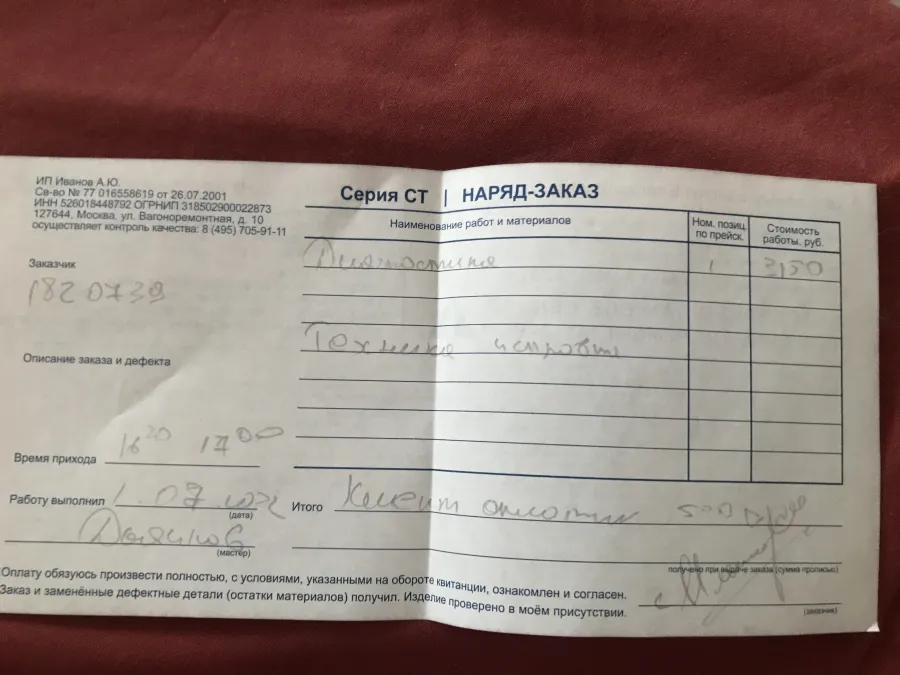 ИП Иванов А.Ю.
Св-во № 77 016558619 от 26.07.2001
ИНН 526018448792 ОГРНИП 318502900022873
127644, Москва. ул. Вагоноремонтная, д. 10
осуществляет контроль качества: 8 (495) 705-91-11
Серия СТ | НАРЯД-ЗАКАЗ
Наименование работ и материалов
Ном. позиц. по прейск.
Стоимость работы. руб.
Диагностика 1 3150
Заказчик
1820739
Техника исправна
Описание заказа и дефекта
Время прихода 16 20 17 00
Работу выполнил 1.07.
(дата)
Итого Клиент оплатил 500
(мастер)
получено при выдаче заказа (сумма прописью)
Оплату обязуюсь произвести полностью, с условиями, указанными на обороте квитанции, ознакомлен и согласен.
Заказ и заменённые дефектные детали (остатки материалов) получил. Изделие проверено в моём присутствии.
(заказчик)